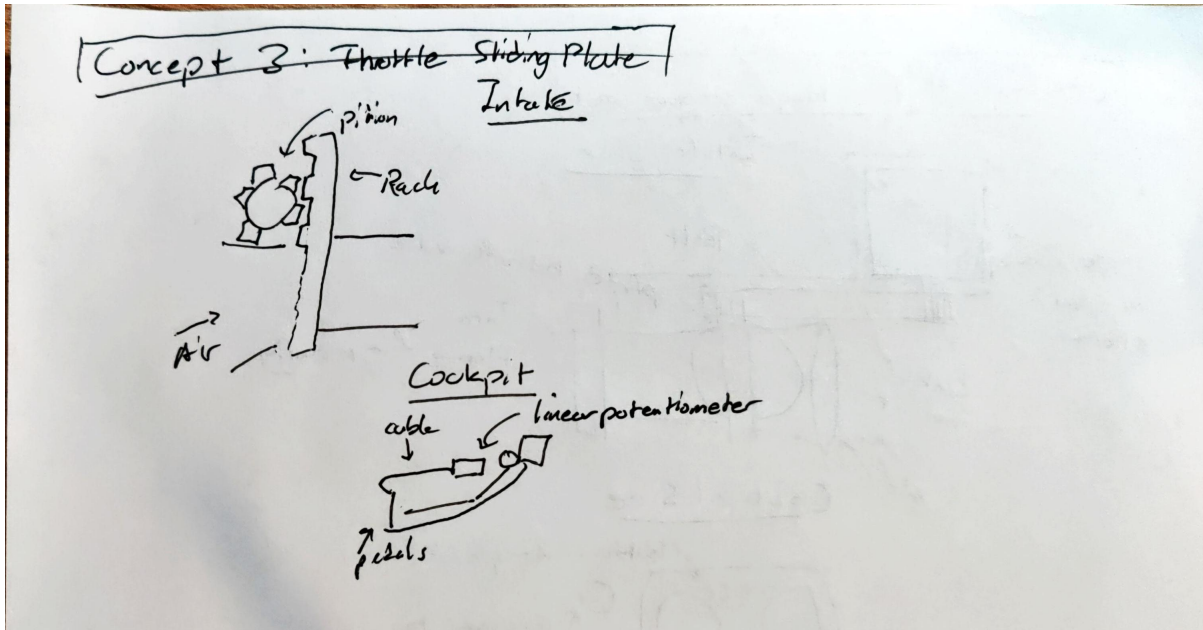 Concept 3: Throttle Sliding Plate
Intake
Pinion
Rack
Air
Cockpit
cable
linear potentiometer
pedals